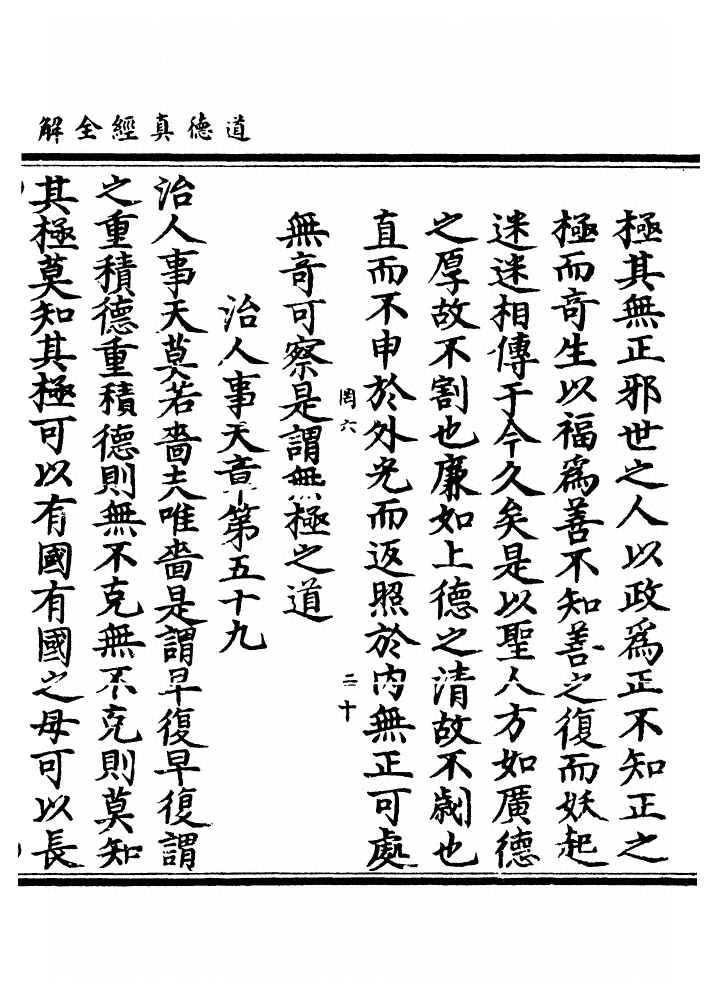 道德真經全解
極其無正邪世之人以政爲正不知正之
極而奇生以福爲善不知善之復而妖起
迷迷相傳于今久矣是以聖人方如廣德
之厚故不割也廉如上德之清故不劌也
直而不申於外光而返照於内無正可處
罔六
二十
無奇可察是謂無極之道
治人事天章第五十九
治人事天莫若嗇夫唯嗇是謂早復早復謂
之重積德重積德則無不克無不克則莫知
其極莫知其極可以有國有國之母可以長